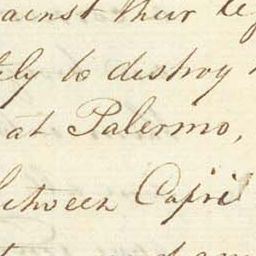 against their
to destroy
at Palermo,
between Capri